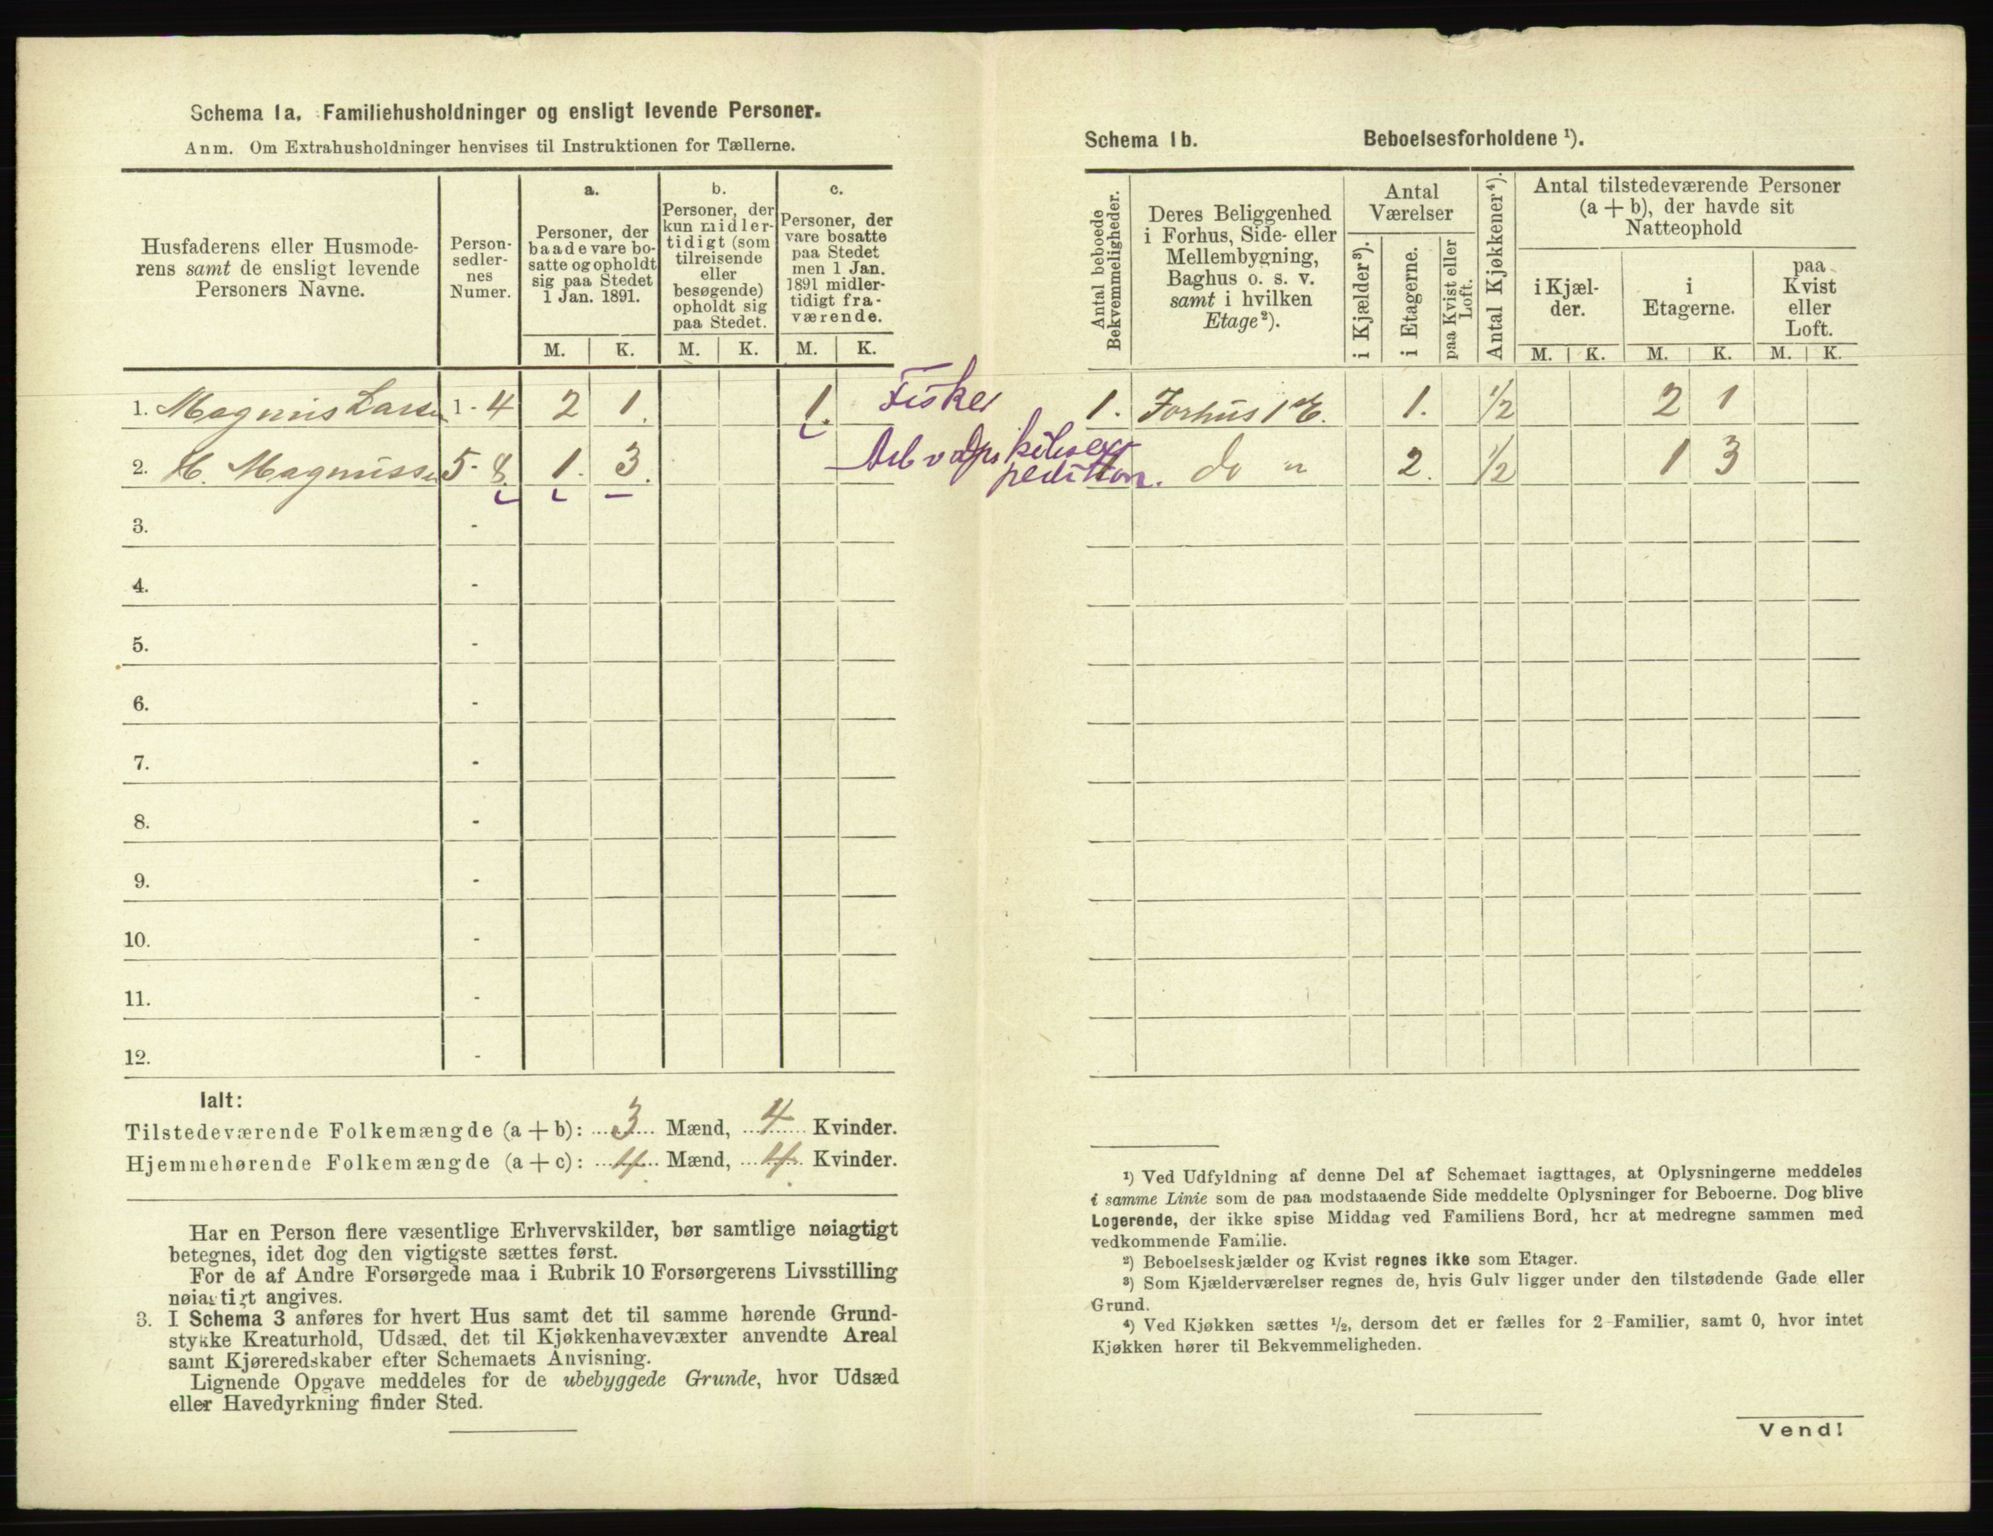 Schema 1a. Familiehusholdninger og ensligt levende Personer.
Anm. Om Extrahusholdninger henvises til Instruktionen for Tællerne.
Husfaderens eller Husmode-
rens samt de ensligt levende
Personers Navne.
Person-
sedler-
nes
Numer.
a.
Personer, der
baade vare bo-
satte og opholdt
sig paa Stedet
1 Jan. 1891.
b.
Personer, der
kun midler-
tidigt (som
tilreisende
eller
besøgende)
opholdt sig
paa Stedet.
c.
Personer, der
vare bosatte
paa Stedet
men 1 Jan.
1891 midler-
tidigt fra-
værende.
M. K. M. K. M. K.
1. Magnus Larsen 1 - 4 2 1. 1. Fisker
2. M. Magnussen 5 - 8. 1. 3. Arb v dpskibsex
pedition.
3. -
4. -
5. -
6. -
7. -
8. -
9. -
10. -
11. -
12. -
Ialt:
Tilstedeværende Folkemængde (a + b): 3 Mænd, 4 Kvinder.
Hjemmehørende Folkemængde (a + c): 4 Mænd, 4 Kvinder.
Har en Person flere væsentlige Erhvervskilder, bør samtlige nøiagtigt
betegnes, idet dog den vigtigste sættes først.
For de af Andre Forsørgede maa i Rubrik 10 Forsørgerens Livsstilling
nøiagtigt angives.
3. I Schema 3 anføres for hvert Hus samt det til samme hørende Grund-
stykke Kreaturhold, Udsæd, det til Kjøkkenhavevæxter anvendte Areal
samt Kjøreredskaber efter Schemaets Anvisning.
Lignende Opgave meddeles for de ubebyggede Grunde, hvor Udsæd
eller Havedyrkning finder Sted.
Schema 1b. Beboelsesforholdene ¹).
Antal beboede
Bekvemmeligheder.
Deres Beliggenhed
i Forhus, Side- eller
Mellembygning,
Baghus o. s. v.
samt i hvilken
Etage²).
Antal
Værelser
i Kjælder³).
i Etagerne.
paa Kvist eller
Loft.
Antal Kjøkkener⁴).
Antal tilstedeværende Personer
(a + b), der havde sit
Natteophold
i Kjæl-
der.
i
Etagerne.
paa
Kvist
eller
Loft.
M. K. M. K. M. K.
1. Forhus 1 E. 1. ½ 2 1
1 do " 2. ½ 1 3
¹) Ved Udfyldning af denne Del af Schemaet iagttages, at Oplysningerne meddeles
i samme Linie som de paa modstaaende Side meddelte Oplysninger for Beboerne. Dog blive
Logerende, der ikke spise Middag ved Familiens Bord, her at medregne sammen med
vedkommende Familie.
²) Beboelseskjælder og Kvist regnes ikke som Etager.
³) Som Kjælderværelser regnes de, hvis Gulv ligger under den tilstødende Gade eller
Grund.
⁴) Ved Kjøkken sættes ½, dersom det er fælles for 2 Familier, samt 0, hvor intet
Kjøkken hører til Bekvemmeligheden.
Vend!